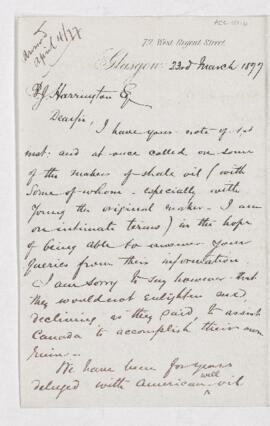 Answd
April 11/77
79, West Regent Street,
Glasgow 23rd March 1877
B J Harrington Esq
Dear Sir,
I have your note of 1st
inst: and at once called on some
of the makers of shale oil (with
some of whom - especially with
Young the original maker - I am
on intimate terms) in the hope
of being able to answer your
queries from their information.
I am sorry to say however that
they would not enlighten me,
declining as they said, to assist
Canada to accomplish their own
ruin.-
We have been for years
deluged with American well oil